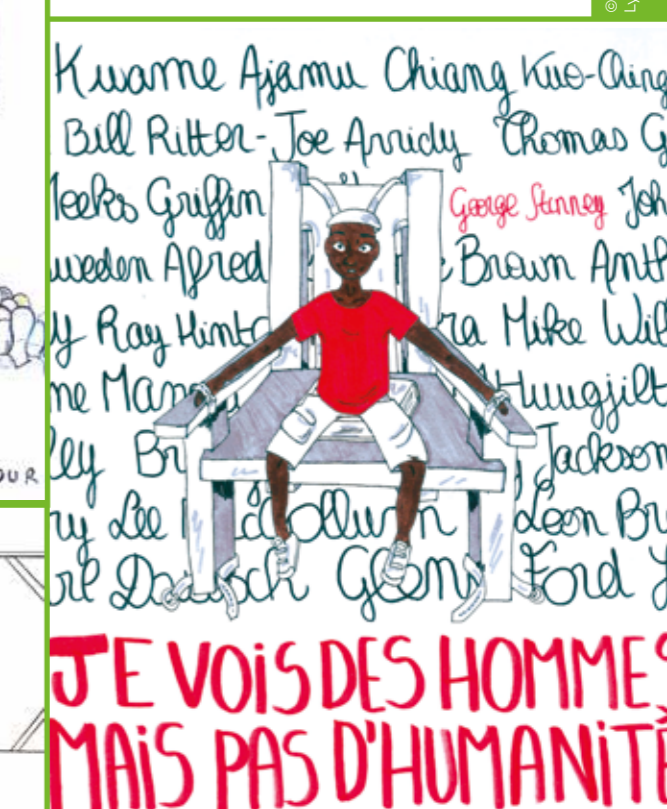 Kwame Ajamu Chiang Kuo-Ching
Bill Ritter-Joe Arridy Thomas G
Meeks Griffin George Stinney Joh
weden Afred Brown Anth
y Ray Hinto ra Mike Will
ne Man Huugjilt
ley Br Jackson
ry Lee McCollum Leon Br
Glenn Ford
JE VOIS DES HOMMES
MAIS PAS D'HUMANITÉ
OUR